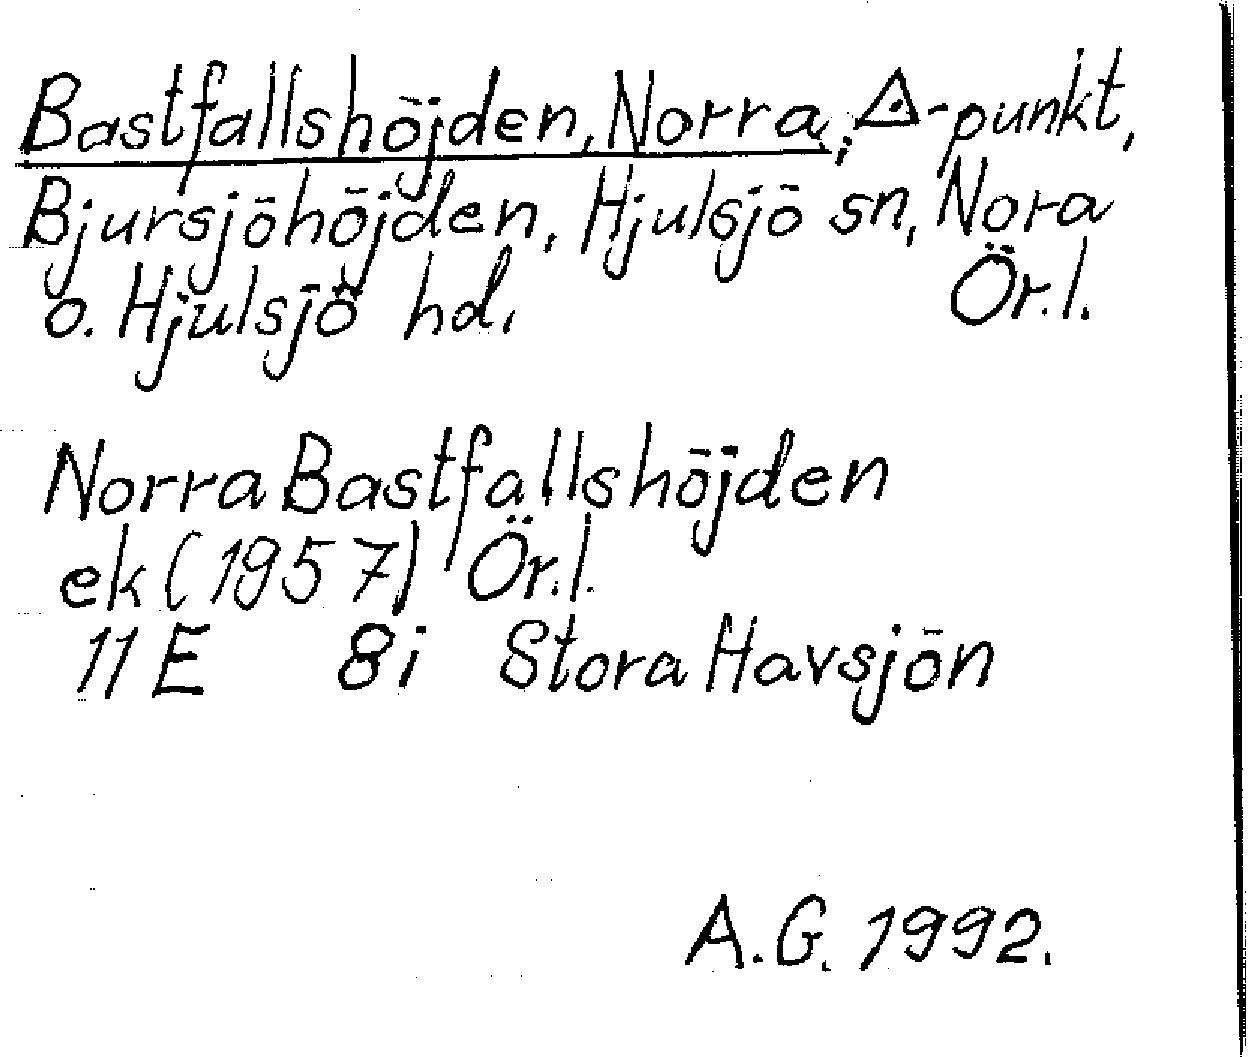 Bastfallshöjden, Norra; △-punkt,
Bjursjöhöjden, Hjulsjö sn, Nora
o. Hjulsjö hd. Ör.l.
Norra Bastfallshöjden
ek (1957) Ör.l.
11 E 8i Stora Havsjön
A.G. 1992.